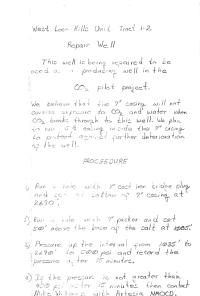 West Loco Hills Unit Tract 1-2
Repair Well
This well is being repaired to be
used as a producing well in the
CO2 pilot project.
We believe that the 7" casing will not
survive exposure to CO2 and water when
CO2 breaks through to this well. We plan
to run casing inside the 7" casing
to protect against further deterioration
of the well.
PROCEDURE
1) Run a hole with 7" cast iron bridge plug
and set at bottom of 7" casing at
2690'.
2) Run a hole with 7" packer and set
above the base of the salt at
3) Pressure up the interval from to
2690' to psi and record the
pressure after 15 minutes.
4) If the pressure is not greater than
psi after 15 minutes then contact
Mike Williams with Artesia NMOCD.